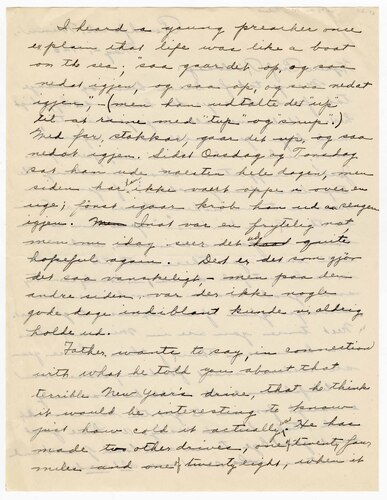 I heard a young preacher once
explain that life was like a boat
on the sea; "saa gaar det op, og saa
nedat igjen, og saa op, og saa nedat
igjen", - (men han udtalte det up
til at rime med "tup" og snup".)
Med far, stakkar, gaar det up, og saa
nedat igjen. Sidst Onsdag og Torsdag
sat han ude næsten hele dagen, men
siden har vi ikke vært oppe i over en
uge; först igaar krøb han ud av sengen
igjen. Inat var en frygtelig nat
men nu idag seer det ud quite
hopeful again. Det er det som gjör
det saa vanskeligt, - men paa den
anden siden, var der ikke nogle
gode dage indiblant kunde vi aldrig
holde ud.
Father wants to say, in connection
with what he told you about that
terrible New Year's drive, that he thinks
it would be interesting to know
just how cold it actually was. He has
made two other drives, one of twenty four
miles and one of twenty eight, when it